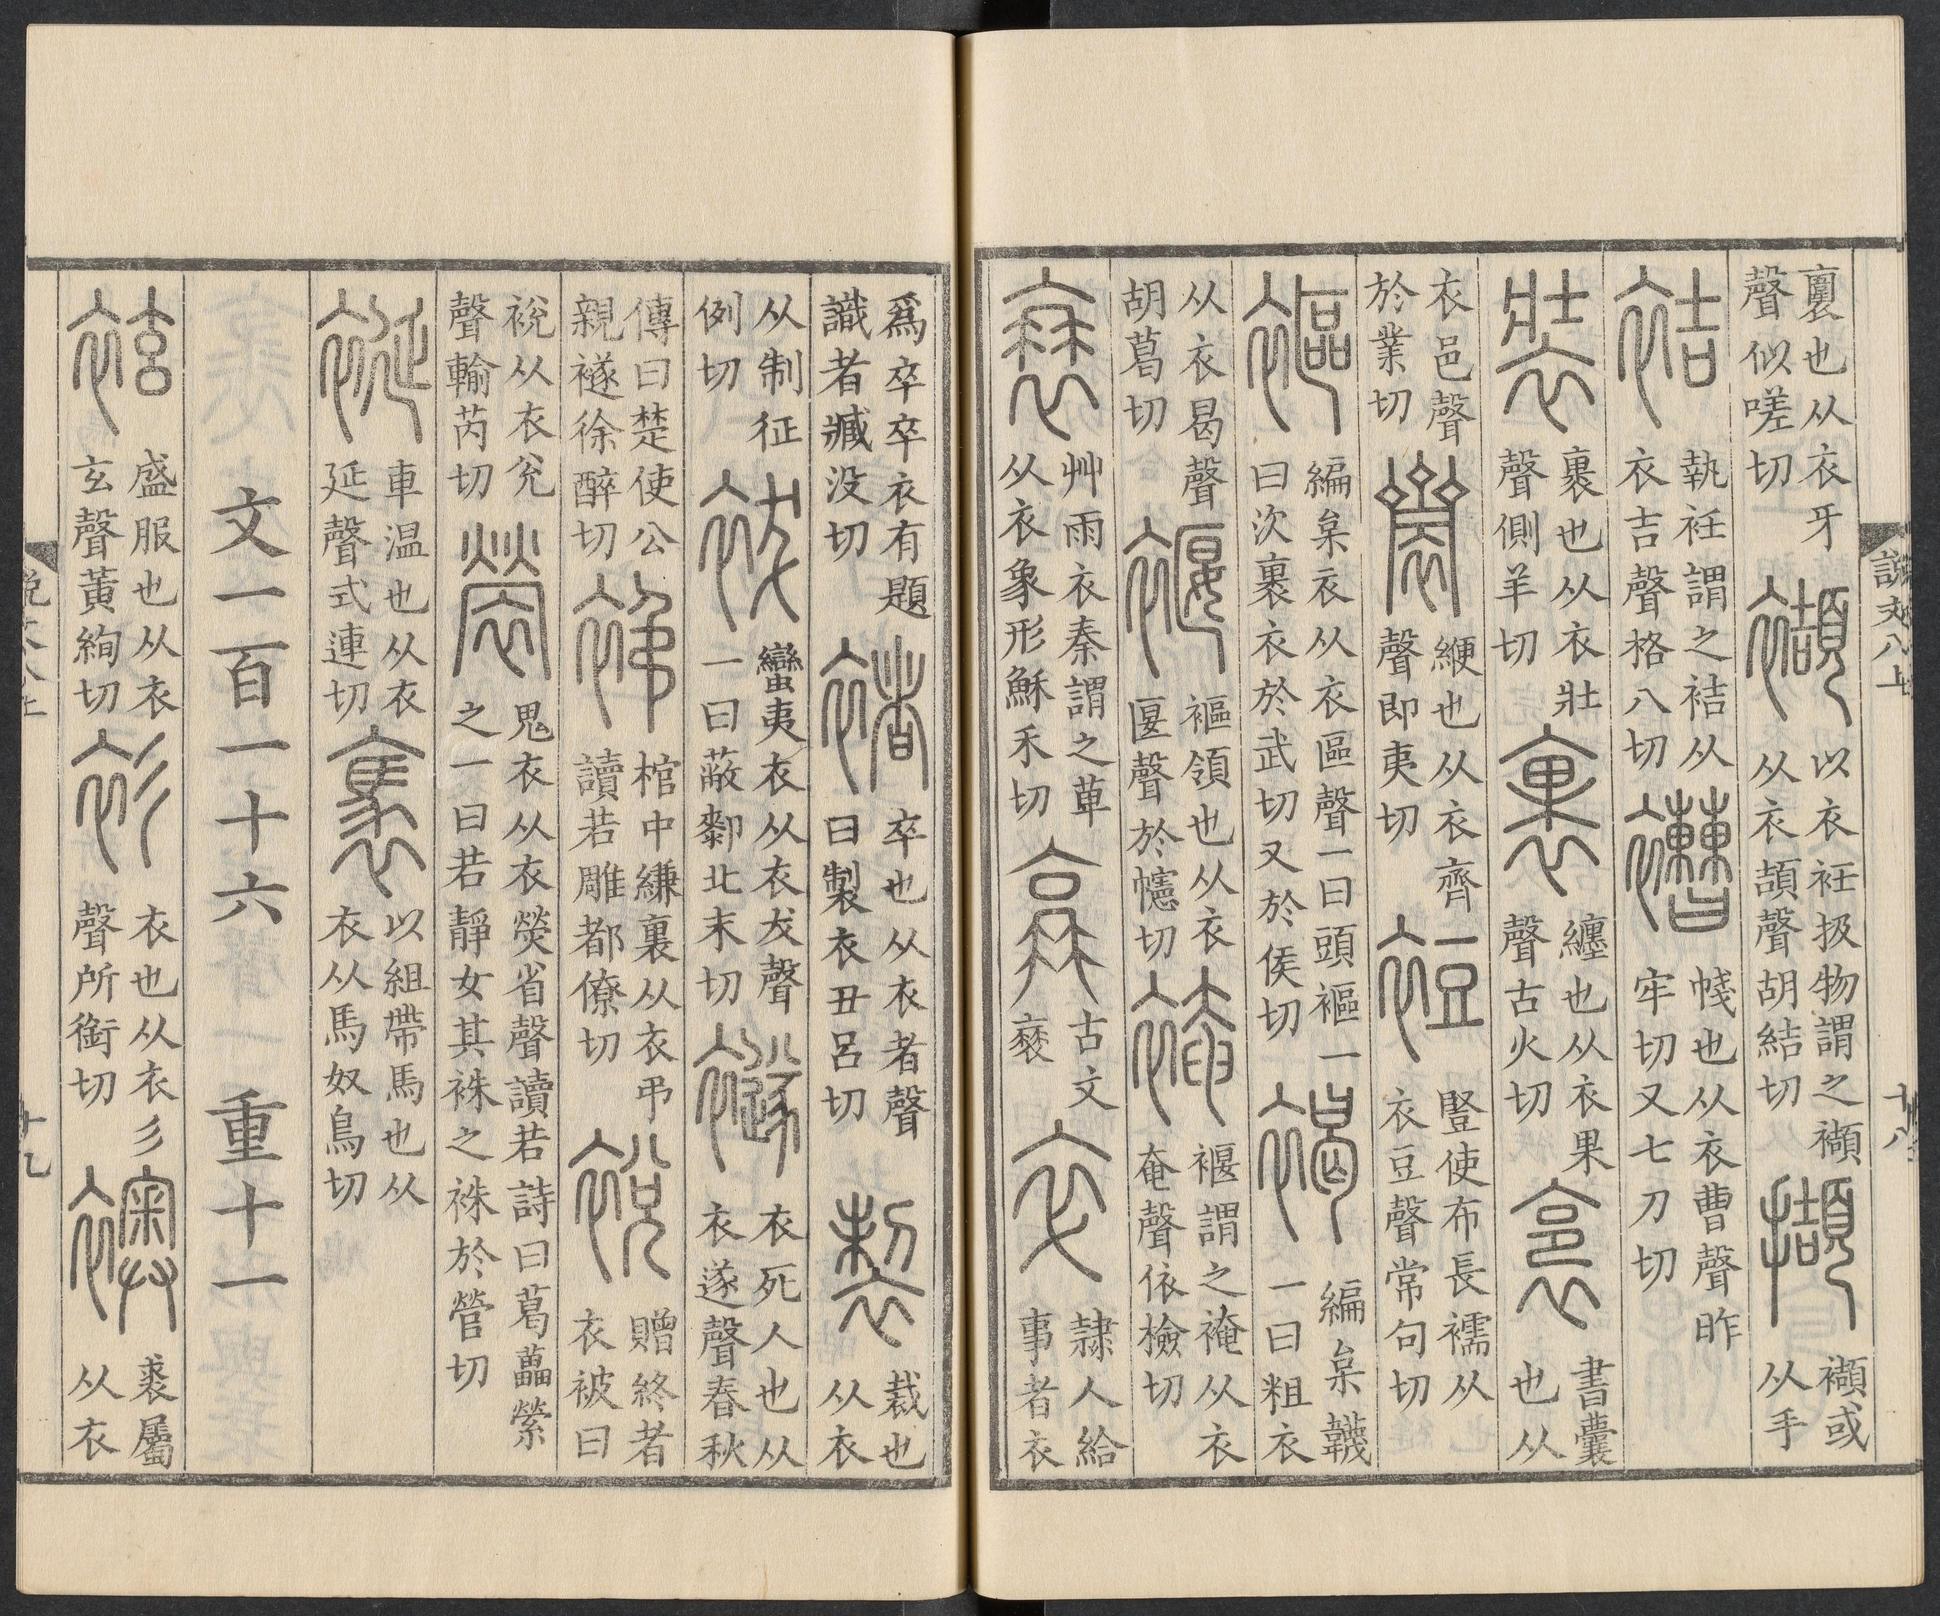 説文八上 十八
褱也从衣牙聲似嗟切 襭 以衣衽扱物謂之襭从衣頡聲胡結切 擷 襭或从手
袺 執衽謂之袺从衣吉聲格八切 帴也从衣曹聲昨牢切又七刀切
裝 裹也从衣壯聲側羊切 裹 纏也从衣果聲古火切 裛 書囊也从
衣邑聲於業切 齌 緶也从衣齊聲即夷切 裋 豎使布長襦从衣豆聲常句切
䙔 編枲衣从衣區聲一曰頭䙔一曰次裹衣於武切又於侯切 褐 編枲韤一曰粗衣
从衣曷聲胡葛切 褗 䙔領也从衣匽聲於幰切 裺 褗謂之裺从衣奄聲依檢切
衰 艸雨衣秦謂之萆从衣象形穌禾切 古文衰 卒 隸人給事者衣
爲卒卒衣有題識者臧没切 褚 卒也从衣者聲曰製衣丑呂切 製 裁也从衣
从制征例切 袚 蠻夷衣从衣犮聲一曰蔽厀北末切 襚 衣死人也从衣遂聲春秋
傳曰楚使公親襚徐醉切 棺中縑裏从衣弔讀若雕都僚切 裞 贈終者衣被曰
裞从衣兌聲輸芮切 褮 鬼衣从衣熒省聲讀若詩曰葛藟縈之一曰若靜女其袾之袾於營切
䘰 車温也从衣延聲式連切 褭 以組帶馬也从衣从馬奴鳥切
文一百一十六 重十一
袨 盛服也从衣玄聲黄絢切 衫 衣也从衣彡聲所銜切 襖 裘屬从衣
説文八上 十九